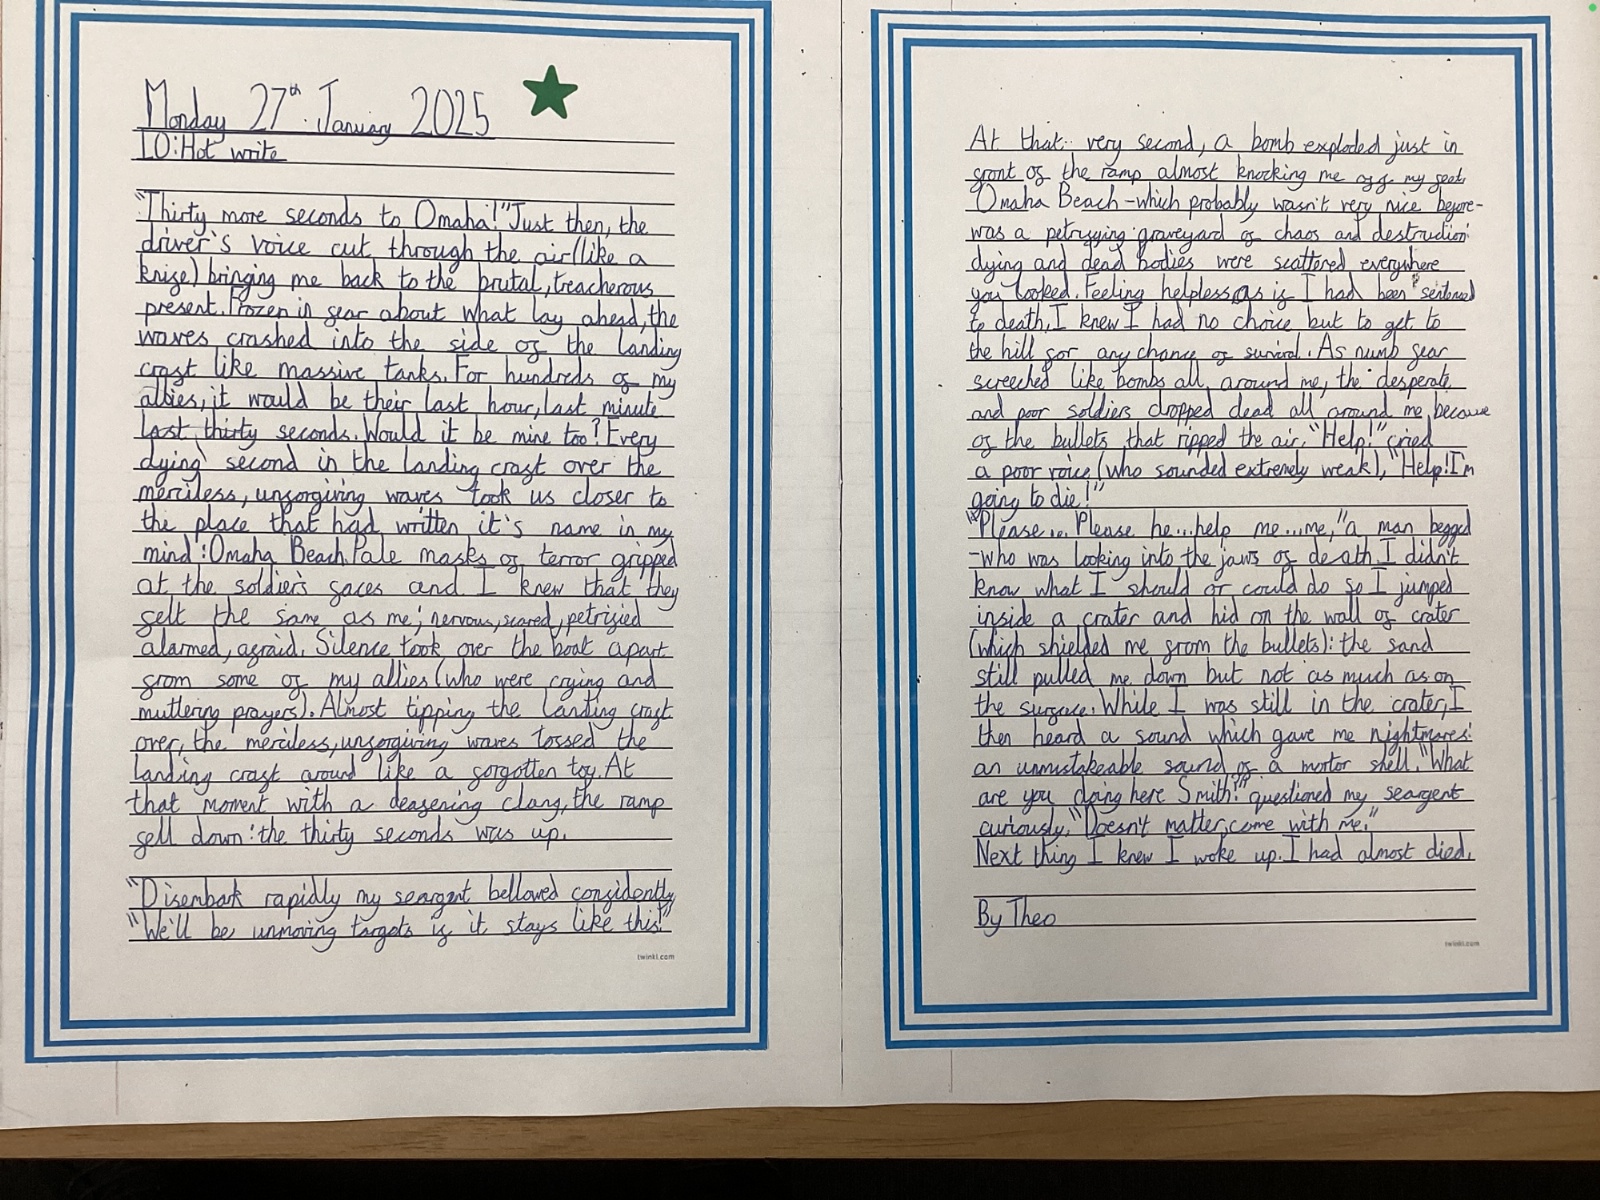 Monday 27th January 2025
LO: Hot write
"Thirty more seconds to Omaha!" Just then, the
driver's voice cut through the air (like a
knife) bringing me back to the brutal, treacherous
present. Frozen in fear about what lay ahead, the
waves crashed into the side of the landing
craft like massive tanks. For hundreds of my
allies, it would be their last hour, last minute
last thirty seconds. Would it be mine too? Every
dying second in the landing craft over the
merciless, unforgiving waves took us closer to
the place that had written it's name in my
mind: Omaha Beach. Pale masks of terror gripped
at the soldier's faces and I knew that they
felt the same as me; nervous, scared, petrified
alarmed, afraid. Silence took over the boat apart
from some of my allies (who were crying and
muttering prayers). Almost tipping the landing craft
over, the merciless, unforgiving waves tossed the
landing craft around like a forgotten toy. At
that moment with a deafening clang, the ramp
fell down: the thirty seconds was up.
"Disembark rapidly my seargent bellowed confidently,
"We'll be unmoving targets if it stays like this!"
twinkl.com
At that very second, a bomb exploded just in
front of the ramp almost knocking me off my feet.
Omaha Beach - which probably wasn't very nice before -
was a petrifying graveyard of chaos and destruction:
dying and dead bodies were scattered everywhere
you looked. Feeling helpless as if I had been sentenced
to death, I knew I had no choice but to get to
the hill for any chance of survival. As numb fear
screeched like bombs all around me, the desperate
and poor soldiers dropped dead all around me because
of the bullets that ripped the air. "Help!" cried
a poor voice (who sounded extremely weak), "Help! I'm
going to die!"
"Please... Please he...help me...me," a man begged
-who was looking into the jaws of death. I didn't
know what I should or could do so I jumped
inside a crater and hid on the wall of crater
(which shielded me from the bullets): the sand
still pulled me down but not as much as on
the surface. While I was still in the crater, I
then heard a sound which gave me nightmares:
an unmistakeable sound of a mortor shell. "What
are you doing here Smith?" questioned my seargent
curiously, "Doesn't matter, come with me."
Next thing I knew I woke up. I had almost died.
By Theo
twinkl.com